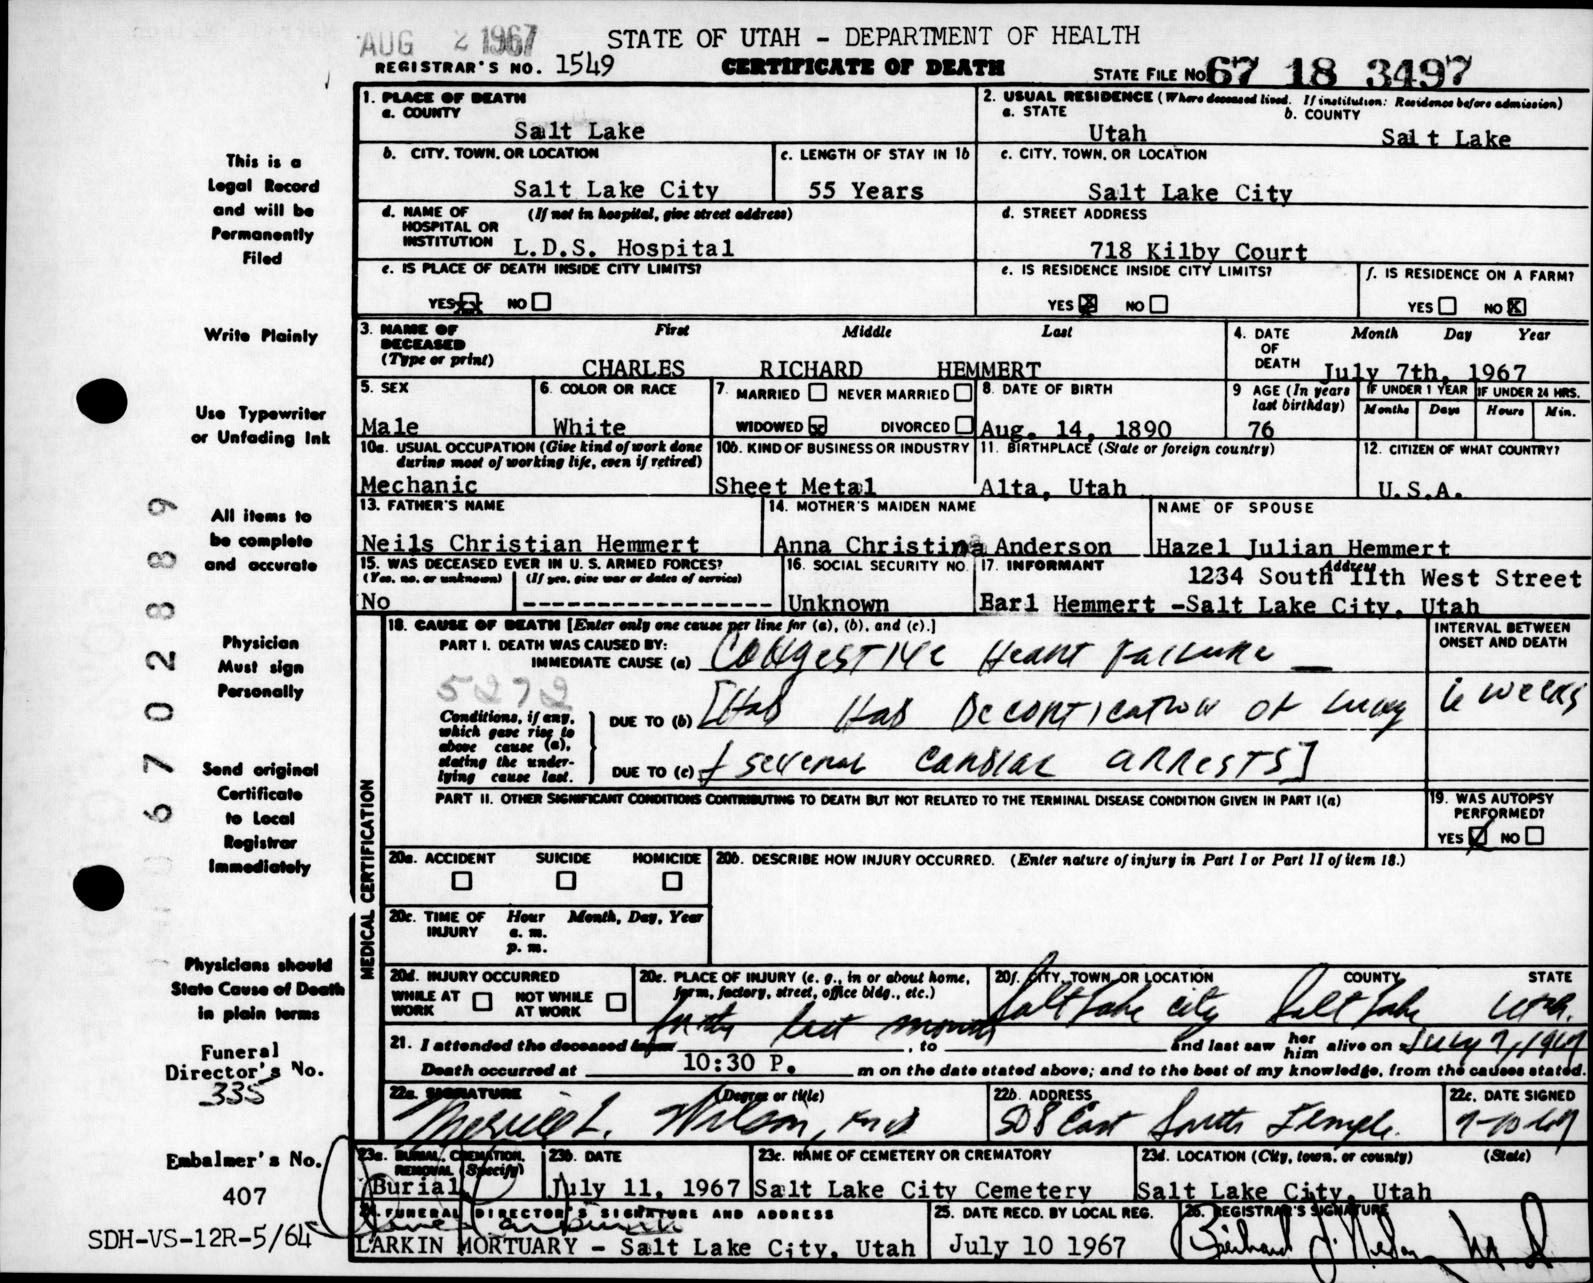 AUG 2 1967
STATE OF UTAH - DEPARTMENT OF HEALTH
REGISTRAR'S NO. 1549
CERTIFICATE OF DEATH
STATE FILE NO. 67 18 3497
This is a
Legal Record
and will be
Permanently
Filed
Write Plainly
Use Typewriter
or Unfading Ink
All items to
be complete
and accurate
Physician
Must sign
Personally
Send original
Certificate
to Local
Registrar
Immediately
Physicians should
State Cause of Death
in plain terms
Funeral
Director's No.
335
Embalmer's No.
407
SDH-VS-12R-5/64
06702889
1. PLACE OF DEATH
a. COUNTY
Salt Lake
2. USUAL RESIDENCE (Where deceased lived. If institution: Residence before admission)
a. STATE b. COUNTY
Utah Salt Lake
b. CITY, TOWN, OR LOCATION
Salt Lake City
c. LENGTH OF STAY IN 1b
55 Years
c. CITY, TOWN, OR LOCATION
Salt Lake City
d. NAME OF (If not in hospital, give street address)
HOSPITAL OR
INSTITUTION L.D.S. Hospital
d. STREET ADDRESS
718 Kilby Court
e. IS PLACE OF DEATH INSIDE CITY LIMITS?
YES xx NO
e. IS RESIDENCE INSIDE CITY LIMITS?
YES X NO
f. IS RESIDENCE ON A FARM?
YES NO X
3. NAME OF First Middle Last
DECEASED
(Type or print)
CHARLES RICHARD HEMMERT
4. DATE Month Day Year
OF
DEATH July 7th, 1967
5. SEX
Male
6. COLOR OR RACE
White
7. MARRIED NEVER MARRIED
WIDOWED x DIVORCED
8. DATE OF BIRTH
Aug. 14, 1890
9 AGE (In years
last birthday)
76
IF UNDER 1 YEAR IF UNDER 24 HRS.
Months Days Hours Min.
10a. USUAL OCCUPATION (Give kind of work done
during most of working life, even if retired)
Mechanic
10b. KIND OF BUSINESS OR INDUSTRY
Sheet Metal
11. BIRTHPLACE (State or foreign country)
Alta, Utah
12. CITIZEN OF WHAT COUNTRY?
U.S.A.
13. FATHER'S NAME
Neils Christian Hemmert
14. MOTHER'S MAIDEN NAME
Anna Christina Anderson
NAME OF SPOUSE
Hazel Julian Hemmert
15. WAS DECEASED EVER IN U. S. ARMED FORCES?
(Yes, no, or unknown) (If yes, give war or dates of service)
No ------------------
16. SOCIAL SECURITY NO.
Unknown
17. INFORMANT Address
1234 South 11th West Street
Earl Hemmert -Salt Lake City, Utah
MEDICAL CERTIFICATION
18. CAUSE OF DEATH [Enter only one cause per line for (a), (b), and (c).]
INTERVAL BETWEEN
ONSET AND DEATH
PART I. DEATH WAS CAUSED BY:
IMMEDIATE CAUSE (a) Congestive Heart Failure
5272
Conditions, if any,
which gave rise to
above cause (a),
stating the under-
lying cause last.
DUE TO (b) [Had Had Decortication of lung 6 weeks
DUE TO (c) & several cardiac arrests]
PART II. OTHER SIGNIFICANT CONDITIONS CONTRIBUTING TO DEATH BUT NOT RELATED TO THE TERMINAL DISEASE CONDITION GIVEN IN PART I(a)
19. WAS AUTOPSY
PERFORMED?
YES NO
20a. ACCIDENT SUICIDE HOMICIDE
20b. DESCRIBE HOW INJURY OCCURRED. (Enter nature of injury in Part I or Part II of item 18.)
20c. TIME OF Hour Month, Day, Year
INJURY a. m.
p. m.
20d. INJURY OCCURRED
WHILE AT WORK NOT WHILE AT WORK
20e. PLACE OF INJURY (e. g., in or about home,
farm, factory, street, office bldg., etc.)
20f. CITY, TOWN, OR LOCATION COUNTY STATE
Salt Lake City Salt Lake Utah.
for the last month
21. I attended the deceased from , to and last saw her him alive on July 7, 1967
Death occurred at 10:30 P. m on the date stated above; and to the best of my knowledge, from the causes stated.
22a. SIGNATURE (Degree or title)
Merrill L. Wilson, M.D
22b. ADDRESS
508 East South Temple.
22c. DATE SIGNED
7-10-67
23a. BURIAL, CREMATION,
REMOVAL (Specify)
Burial
23b. DATE
July 11, 1967
23c. NAME OF CEMETERY OR CREMATORY
Salt Lake City Cemetery
23d. LOCATION (City, town, or county) (State)
Salt Lake City, Utah
24. FUNERAL DIRECTOR'S SIGNATURE AND ADDRESS
LARKIN MORTUARY - Salt Lake City, Utah
25. DATE RECD. BY LOCAL REG.
July 10 1967
26. REGISTRAR'S SIGNATURE